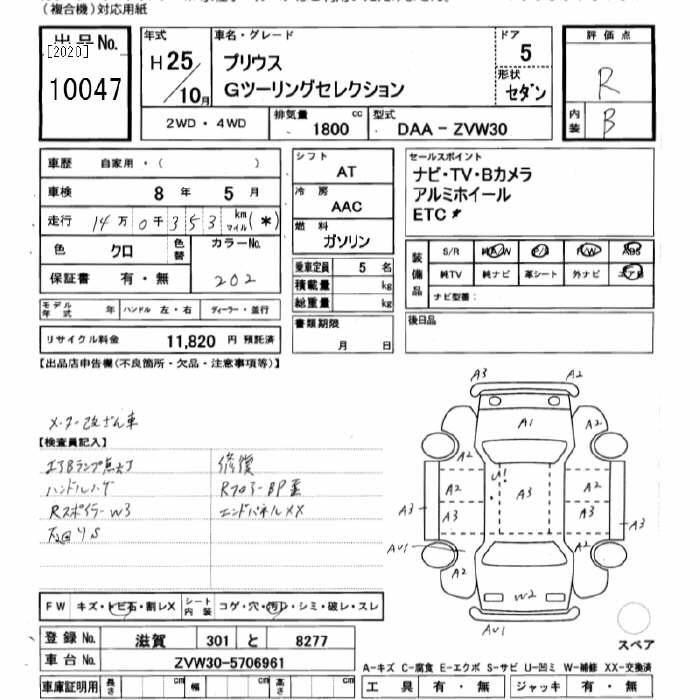 (複合機)対応用紙
出品No. [2020] 10047
年式 H25/10月
車名・グレード プリウス
Gツーリングセレクション
ドア 5
形状 セダン
評価点 R
内装 B
2WD・4WD 排気量 1800 cc 型式 DAA-ZVW30
車歴 自家用・( )
車検 8 年 5 月
走行 14万0千353 km マイル (*)
色 クロ 色替 カラーNo. 202
保証書 有・無
モデル年式 年 ハンドル 左・右 ディーラー・並行
リサイクル料金 11,820 円 預託済
シフト AT
冷房 AAC
燃料 ガソリン
乗車定員 5 名
積載量 kg
総重量 kg
書類期限 月 日
セールスポイント
ナビ・TV・Bカメラ
アルミホイール
ETC*
装備品 S/R 純A/W P/S P/W ABS
純TV 純ナビ 革シート 外ナビ エアB
ナビ型番:
後日品
【出品店申告欄(不良箇所・欠品・注意事項等)】
メーター改ざん車
【検査員記入】
エアBランプ点灯 修復
ハンドルハゲ Rフロアー
Rスポイラーw3 エンドパネルXX
A3 A2
A1
A2 A2
A2 U1 A3 A2
A3 A3 A3 A3
AU1 A2 A2
W2
AU1
スペア
FW キズ・トビ石・割レX シート内装 コゲ・穴・汚レ・シミ・破レ・スレ
登録No. 滋賀 301 と 8277
車台No. ZVW30-5706961
車庫証明用 長さ cm 幅 cm 高さ cm
A-キズ C-腐食 E-エクボ S-サビ U-凹ミ W-補修 XX-交換済
工具 有・無 ジャッキ 有・無